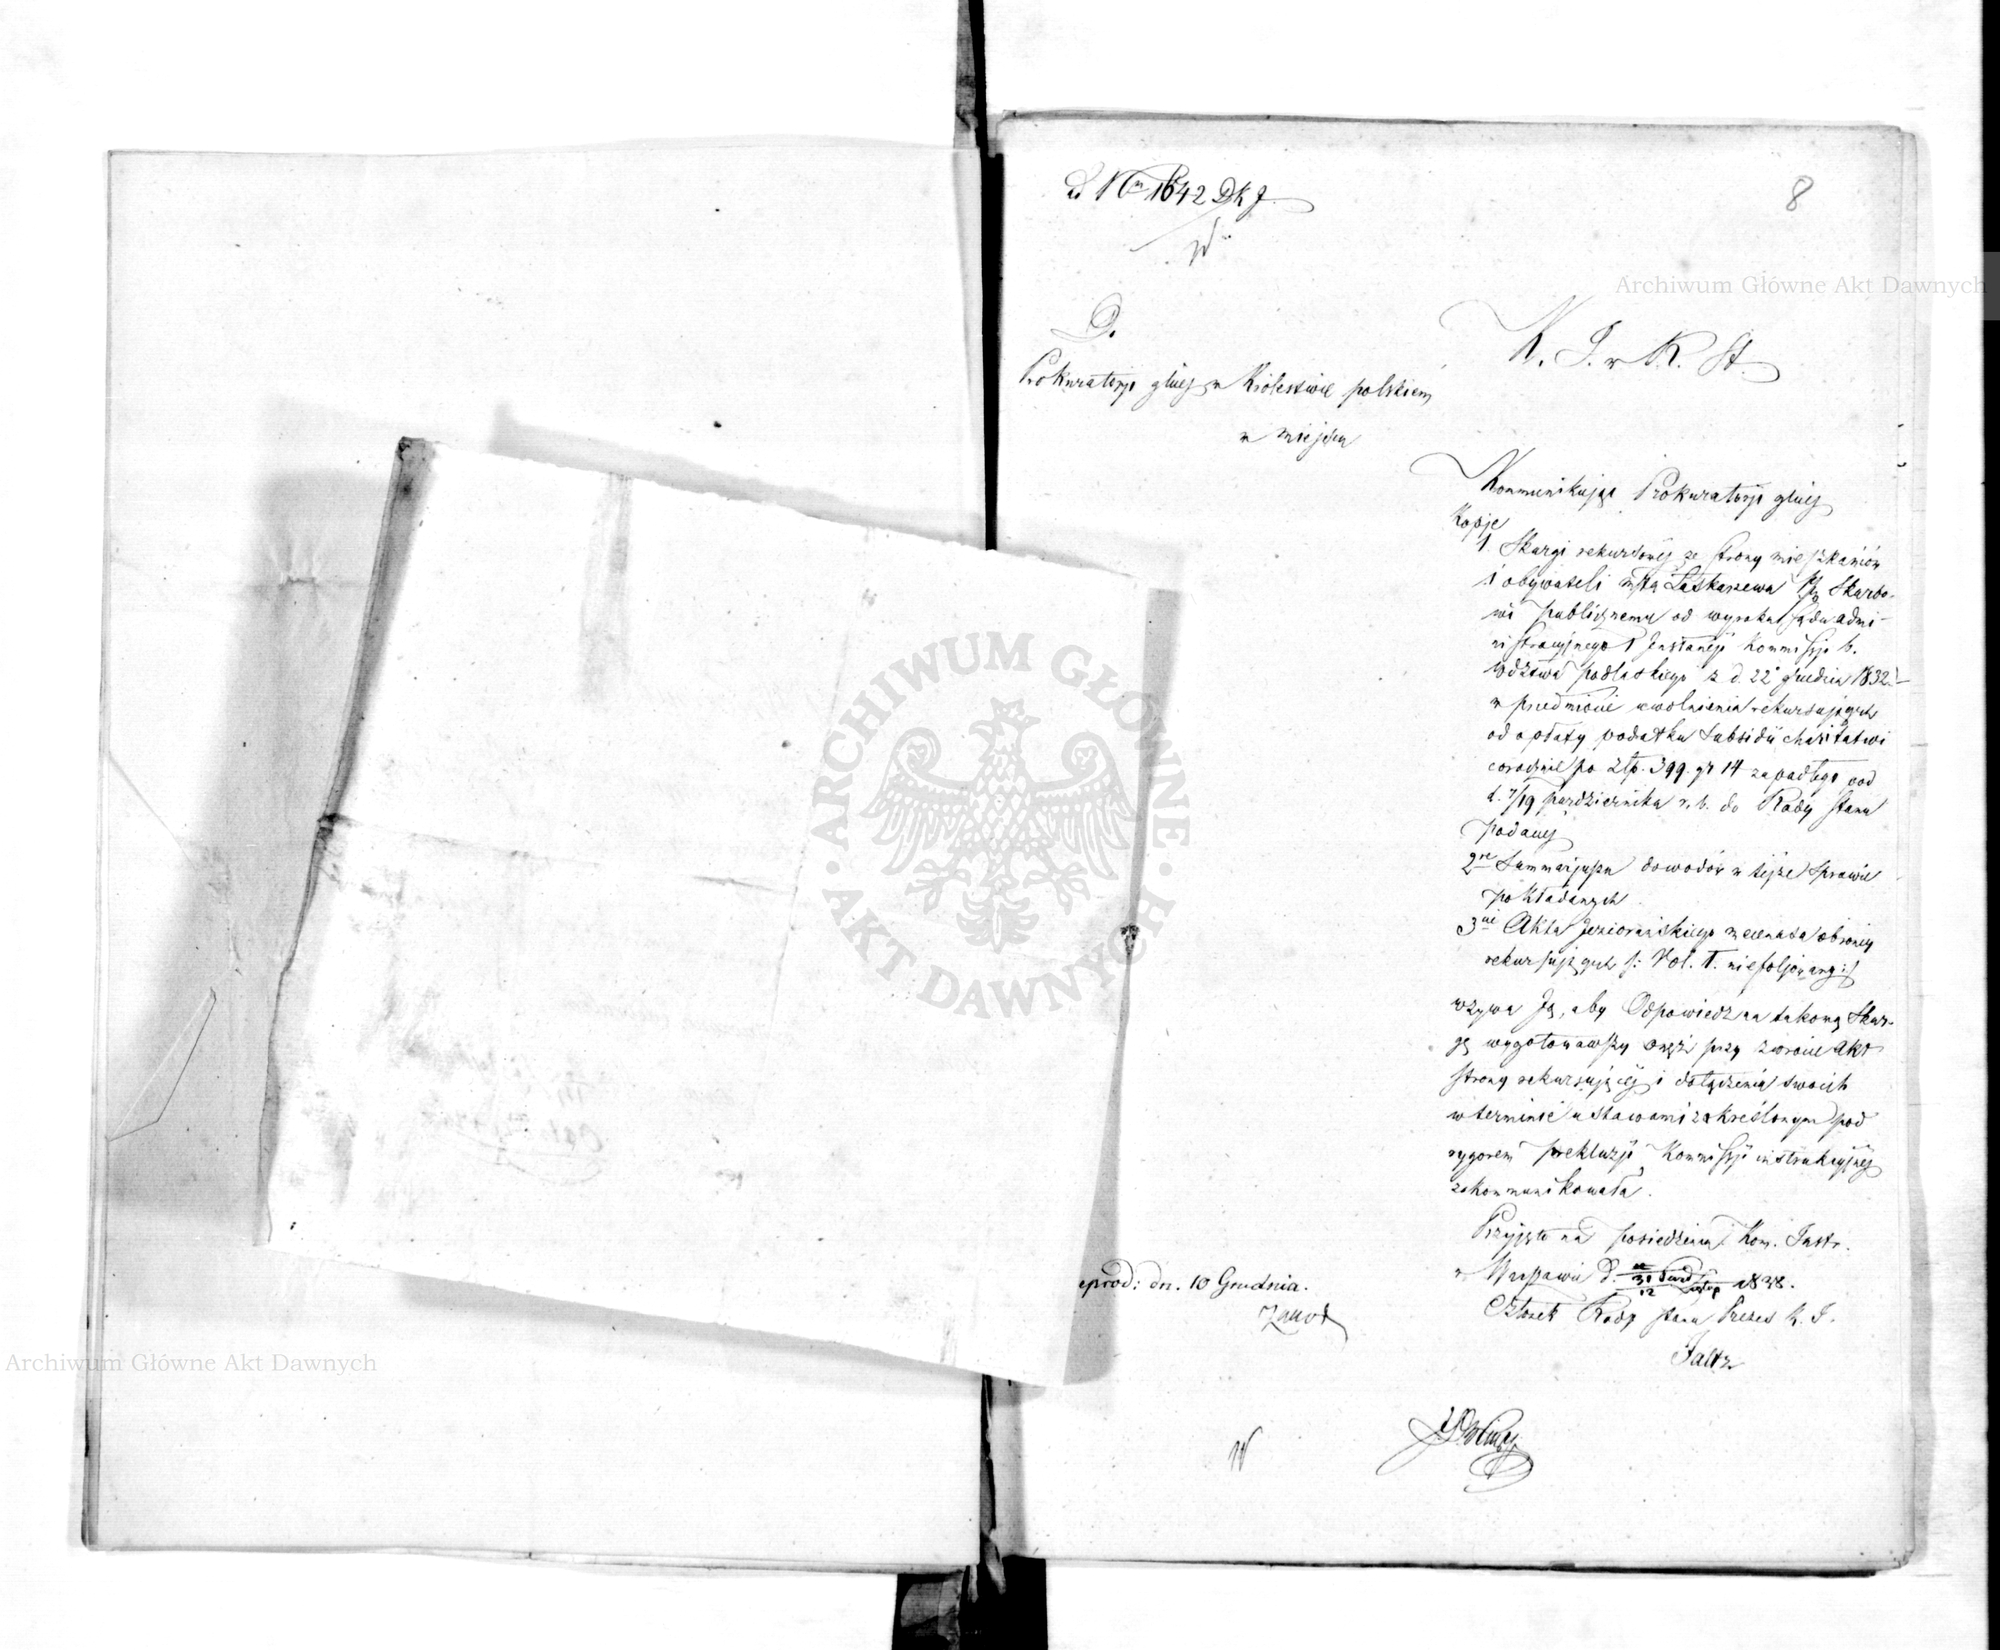 8
Archiwum Główne Akt Dawnych
D.
Prokuratorji głnej w Królestwie polskiem
w miejscu
K. I. w R. St.
Kommunikując Prokuratorji głnej
Kopje
1. Skargi rekursowej ze strony mieszkańców
i obywateli msta Łaskarzewa Skarbo-
wi publicznemu od wyroku sądu admi-
nistracyjnego I Instancji Kommissji b.
Wdztwa podlaskiego z d. 22 grudnia 1832
w przedmiocie uwolnienia rekursujących
od opłaty podatku Subsidii charitativi
corocznie po Złp. 399 gr 14 zapadłego pod
d. 7/19 października r. b. do Rady Stanu
podanej
2re Summarjusza dowodów w tejże sprawie
pokładanych
3cie Akta Jeziorańskiego mecenasa obrońcy
rekursujących /: Vol. I. niefoljowany :/
wzywa Ją, aby Odpowiedź na takową Skar-
gę wygotowawszy oneż przy zwrocie Akt
strony rekursującej i dołączeniu swoich
w terminie ustawami zakreślonym pod
rygorem prekluzji Kommissji instrukcyjnej
zakommunikowała.
Przyjęto na posiedzeniu Kom. Instr.
w Warszawie d. 1838.
Członek Rady Stanu Prezes K. I.
Faltz
eprod: dn. 10 Grudnia.
ARCHIWUM GŁÓWNE
AKT DAWNYCH
Archiwum Główne Akt Dawnych